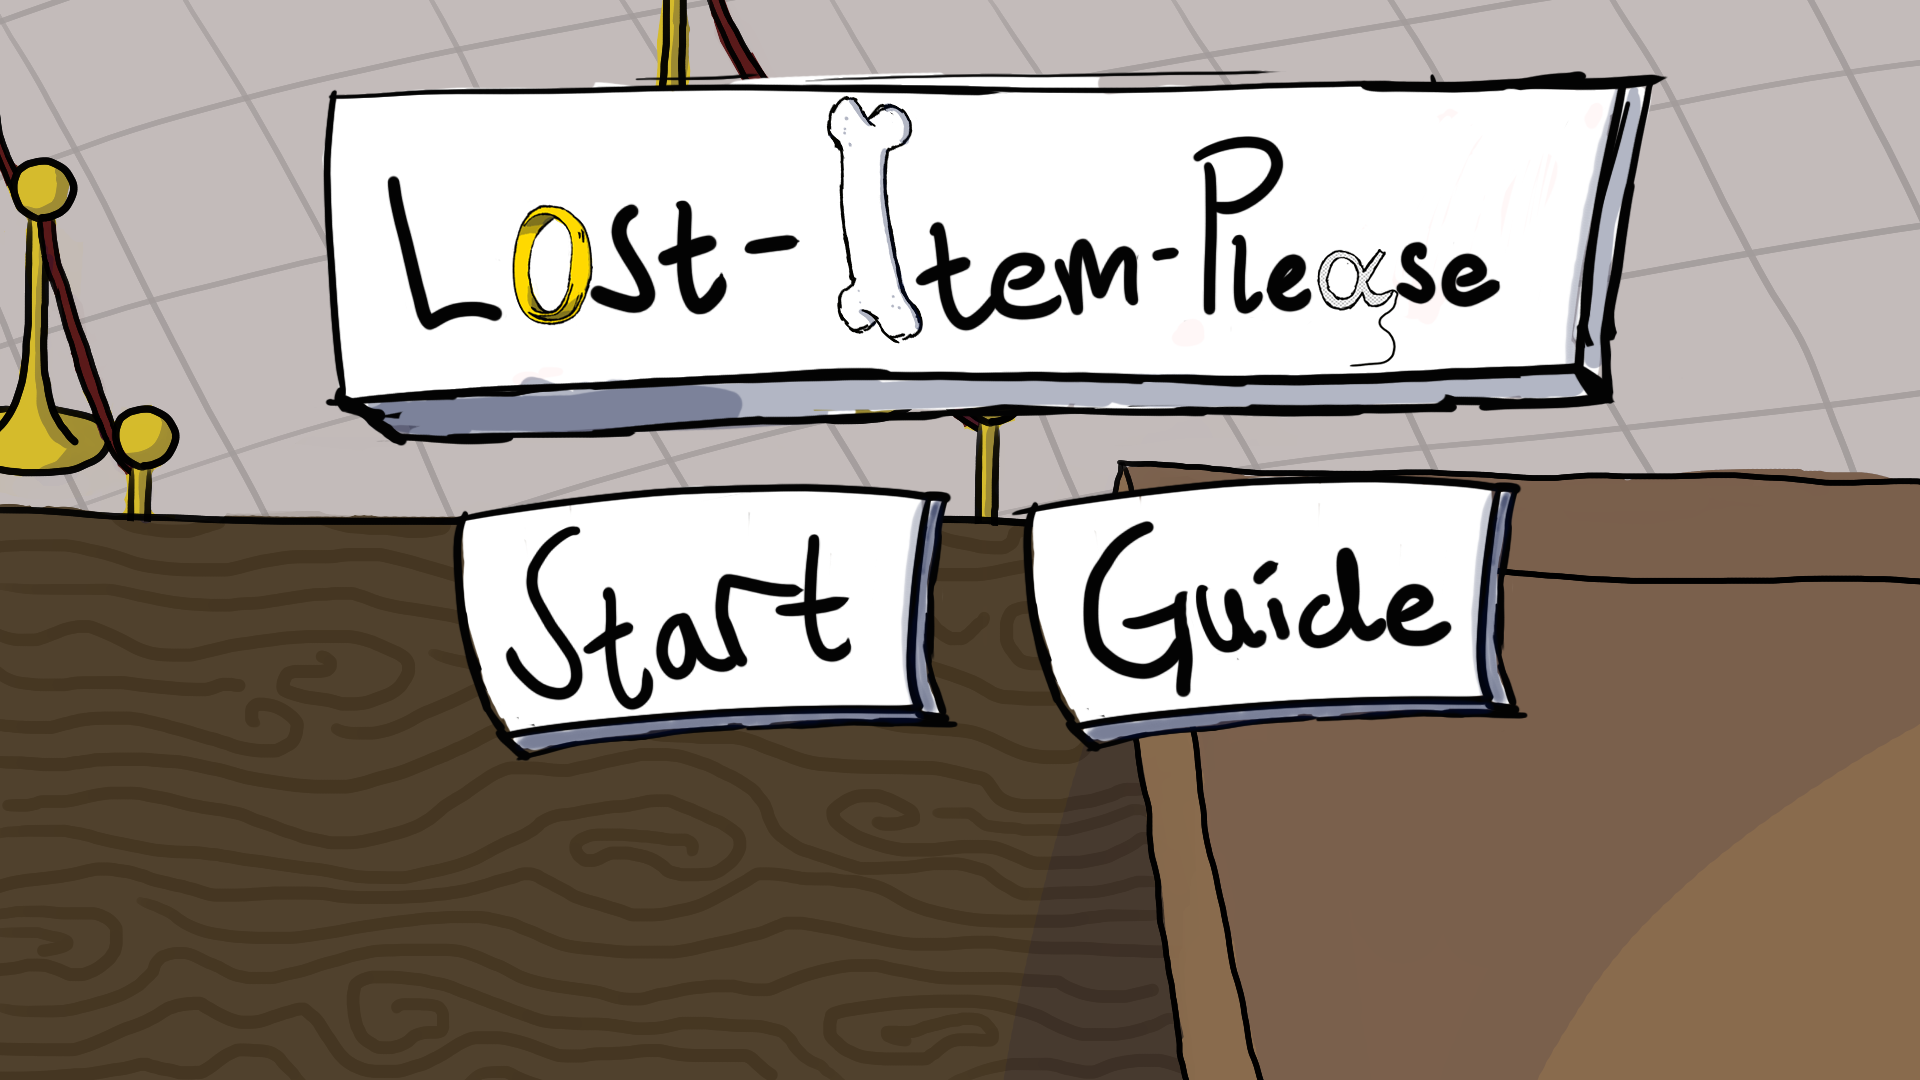 Lost-Item-Please
Start
Guide